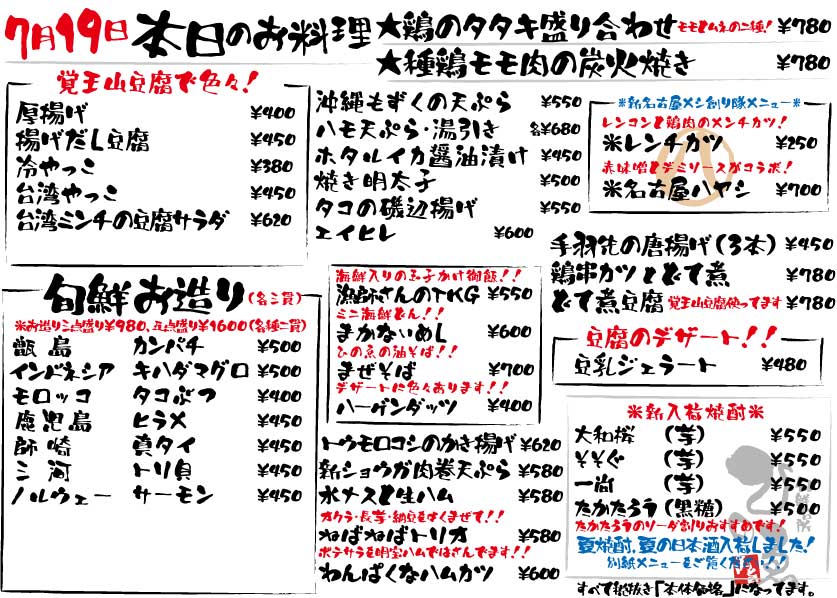 7月19日 本日のお料理
★鶏のタタキ盛り合わせ モモとムネの二種! ¥780
★種鶏モモ肉の炭火焼き ¥780
覚王山豆腐で色々!
厚揚げ ¥400
揚げだし豆腐 ¥450
冷やっこ ¥380
台湾やっこ ¥450
台湾ミンチの豆腐サラダ ¥620
沖縄もずくの天ぷら ¥550
ハモ天ぷら・湯引き 各¥680
ホタルイカ醤油漬け ¥450
焼き明太子 ¥500
タコの磯辺揚げ ¥550
エイヒレ ¥600
※新名古屋メシ創り隊メニュー※
レンコンと鶏肉のメンチカツ!
※レンチカツ ¥250
赤味噌とデミソースがコラボ!
※名古屋ハヤシ ¥700
手羽先の唐揚げ(3本) ¥450
鶏串カツとどて煮 ¥780
どて煮豆腐 覚王山豆腐使ってます ¥780
豆腐のデザート!!
豆乳ジェラート ¥480
旬鮮お造り(各三貫)
※お造り三点盛り¥980、五点盛り¥1600(各種二貫)
甑島 カンパチ ¥500
インドネシア キハダマグロ ¥500
モロッコ タコぶつ ¥400
鹿児島 ヒラメ ¥450
師崎 真タイ ¥450
三河 トリ貝 ¥450
ノルウェー サーモン ¥450
海鮮入りの玉子かけ御飯!!
漁師さんのTKG ¥550
ミニ海鮮どん!!
まかないめし ¥600
ひの系の油そば!!
まぜそば ¥700
デザートに色々あります!!
ハーゲンダッツ ¥400
トウモロコシのかき揚げ ¥620
新ショウガ肉巻天ぷら ¥580
水ナスと生ハム ¥580
オクラ・長芋・納豆をよくまぜて!!
ねばねばトリオ ¥580
ポテサラを明宝ハムではさんでます!!
わんぱくなハムカツ ¥600
※新入荷焼酎※
大和桜 (芋) ¥550
そそぐ (芋) ¥550
一尚 (芋) ¥550
たかたろう (黒糖) ¥550
たかたろうのソーダ割りおすすめです!
夏焼酎、夏の日本酒入荷しました!
別紙メニューをご覧ください!!
すべて税抜き「本体価格」になってます。